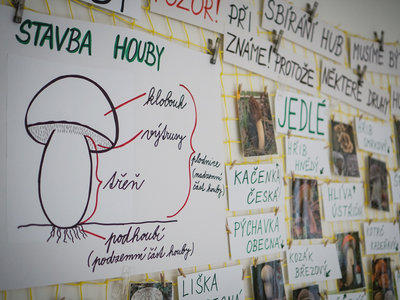 POZOR!
STAVBA HOUBY
klobouk
výtrusy
třeň
plodnice
(nadzemní část houby)
podhoubí
(podzemní část houby)
PŘI
SBÍRÁNÍ HUB
MUSÍME BÝ
ZNÁME!
PROTOŽE
NĚKTERÉ DRUHY
JEDLÉ
HŘIB
HNĚDÝ
HŘIB
KAČENKA
ČESKÁ
HLÍVA
ÚSTŘIČN
PÝCHAVKA
OBECNÁ
KOZÁK
BŘEZOVÝ
LIŠKA
OBECNÁ